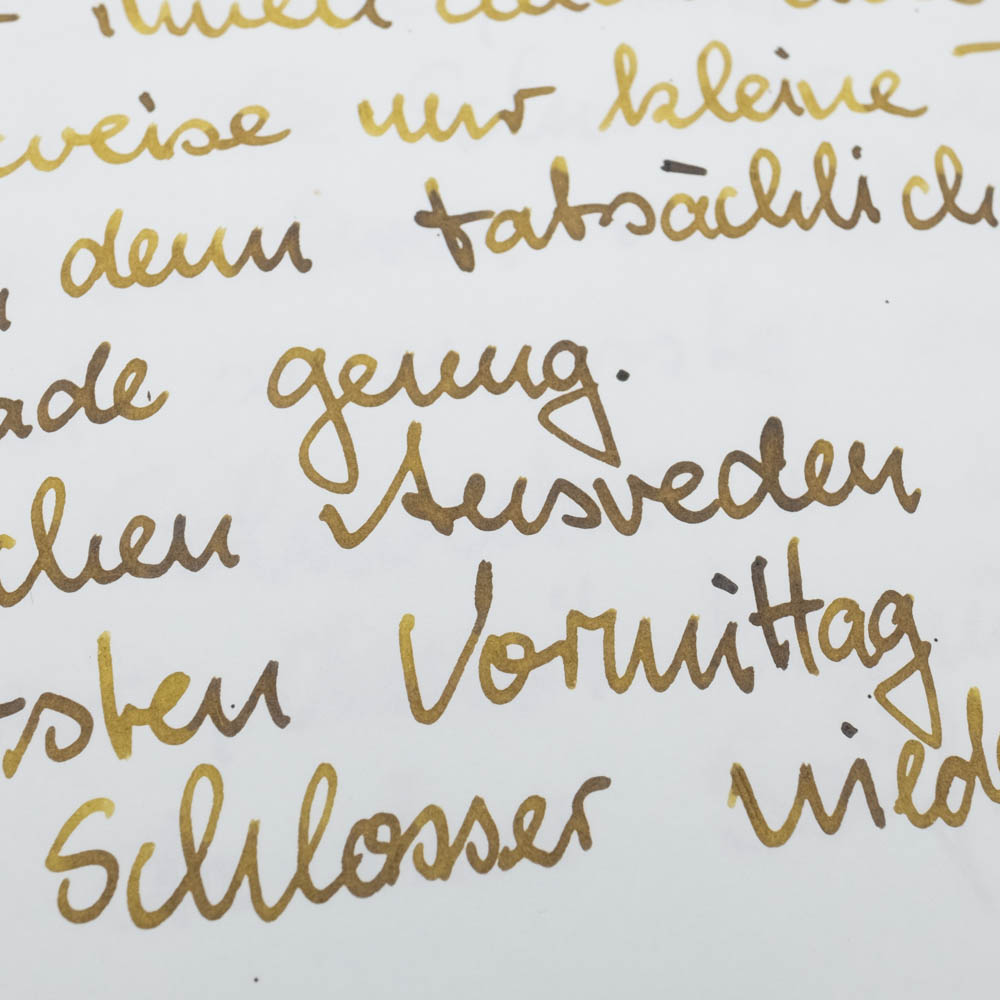 weise nur kleine
denn tatsächlich
ade genug.
chen Ausreden
sten Vormittag
Schlosser wied